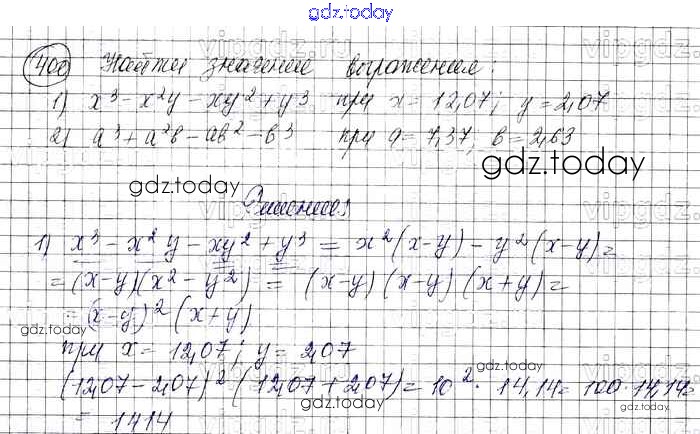 gdz.today
400 Найти значение выражения:
1) x³ - x²y - xy² + y³ при x = 12,07; y = 2,07
2) a³ + a²b - ab² - b³ при a = 7,37; b = 2,63
gdz.today
gdz.today
Решение:
1) x³ - x²y - xy² + y³ = x²(x-y) - y²(x-y) =
= (x-y)(x² - y²) = (x-y)(x-y)(x+y) =
= (x-y)²(x+y)
gdz.today
при x = 12,07; y = 2,07
gdz.today
(12,07 - 2,07)²(12,07 + 2,07) = 10² · 14,14 = 100 · 14,14 =
gdz.today
gdz.today
= 1414